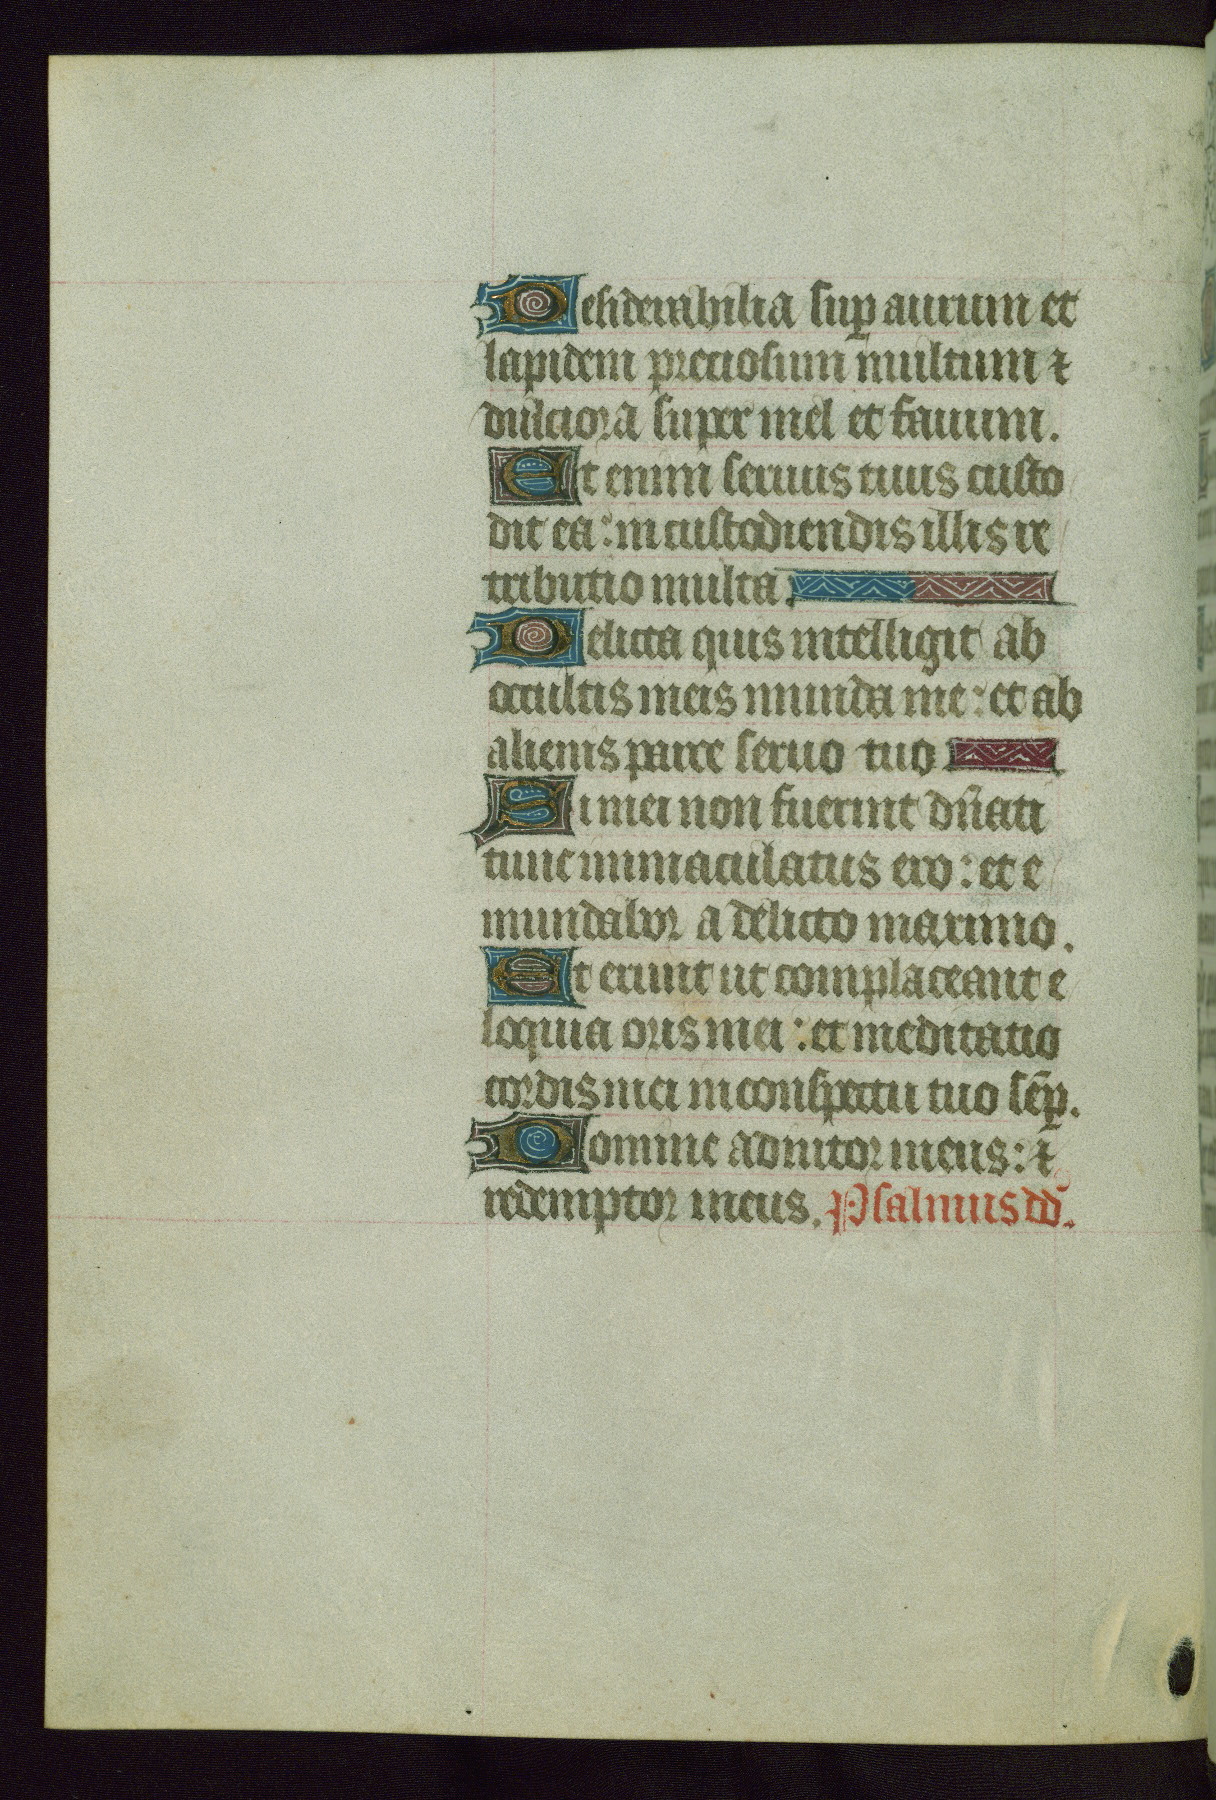 Desiderabilia sup aurum et
lapidem preciosum multum ⁊
dulciora super mel et fauum.
Et enim seruus tuus custo
dit ea: in custodiendis illis re
tributio multa.
Delicta quis intelligit ab
occultis meis munda me: et ab
alienis parce seruo tuo
Si mei non fuerint dn̄ati
tunc inmaculatus ero: et e
mundabor a delicto maximo.
Et erunt ut complaceant e
loquia oris mei: et meditatio
cordis mei in conspectu tuo sēp.
Domine adiutor meus: ⁊
redemptor meus. Psalmus dd̄.